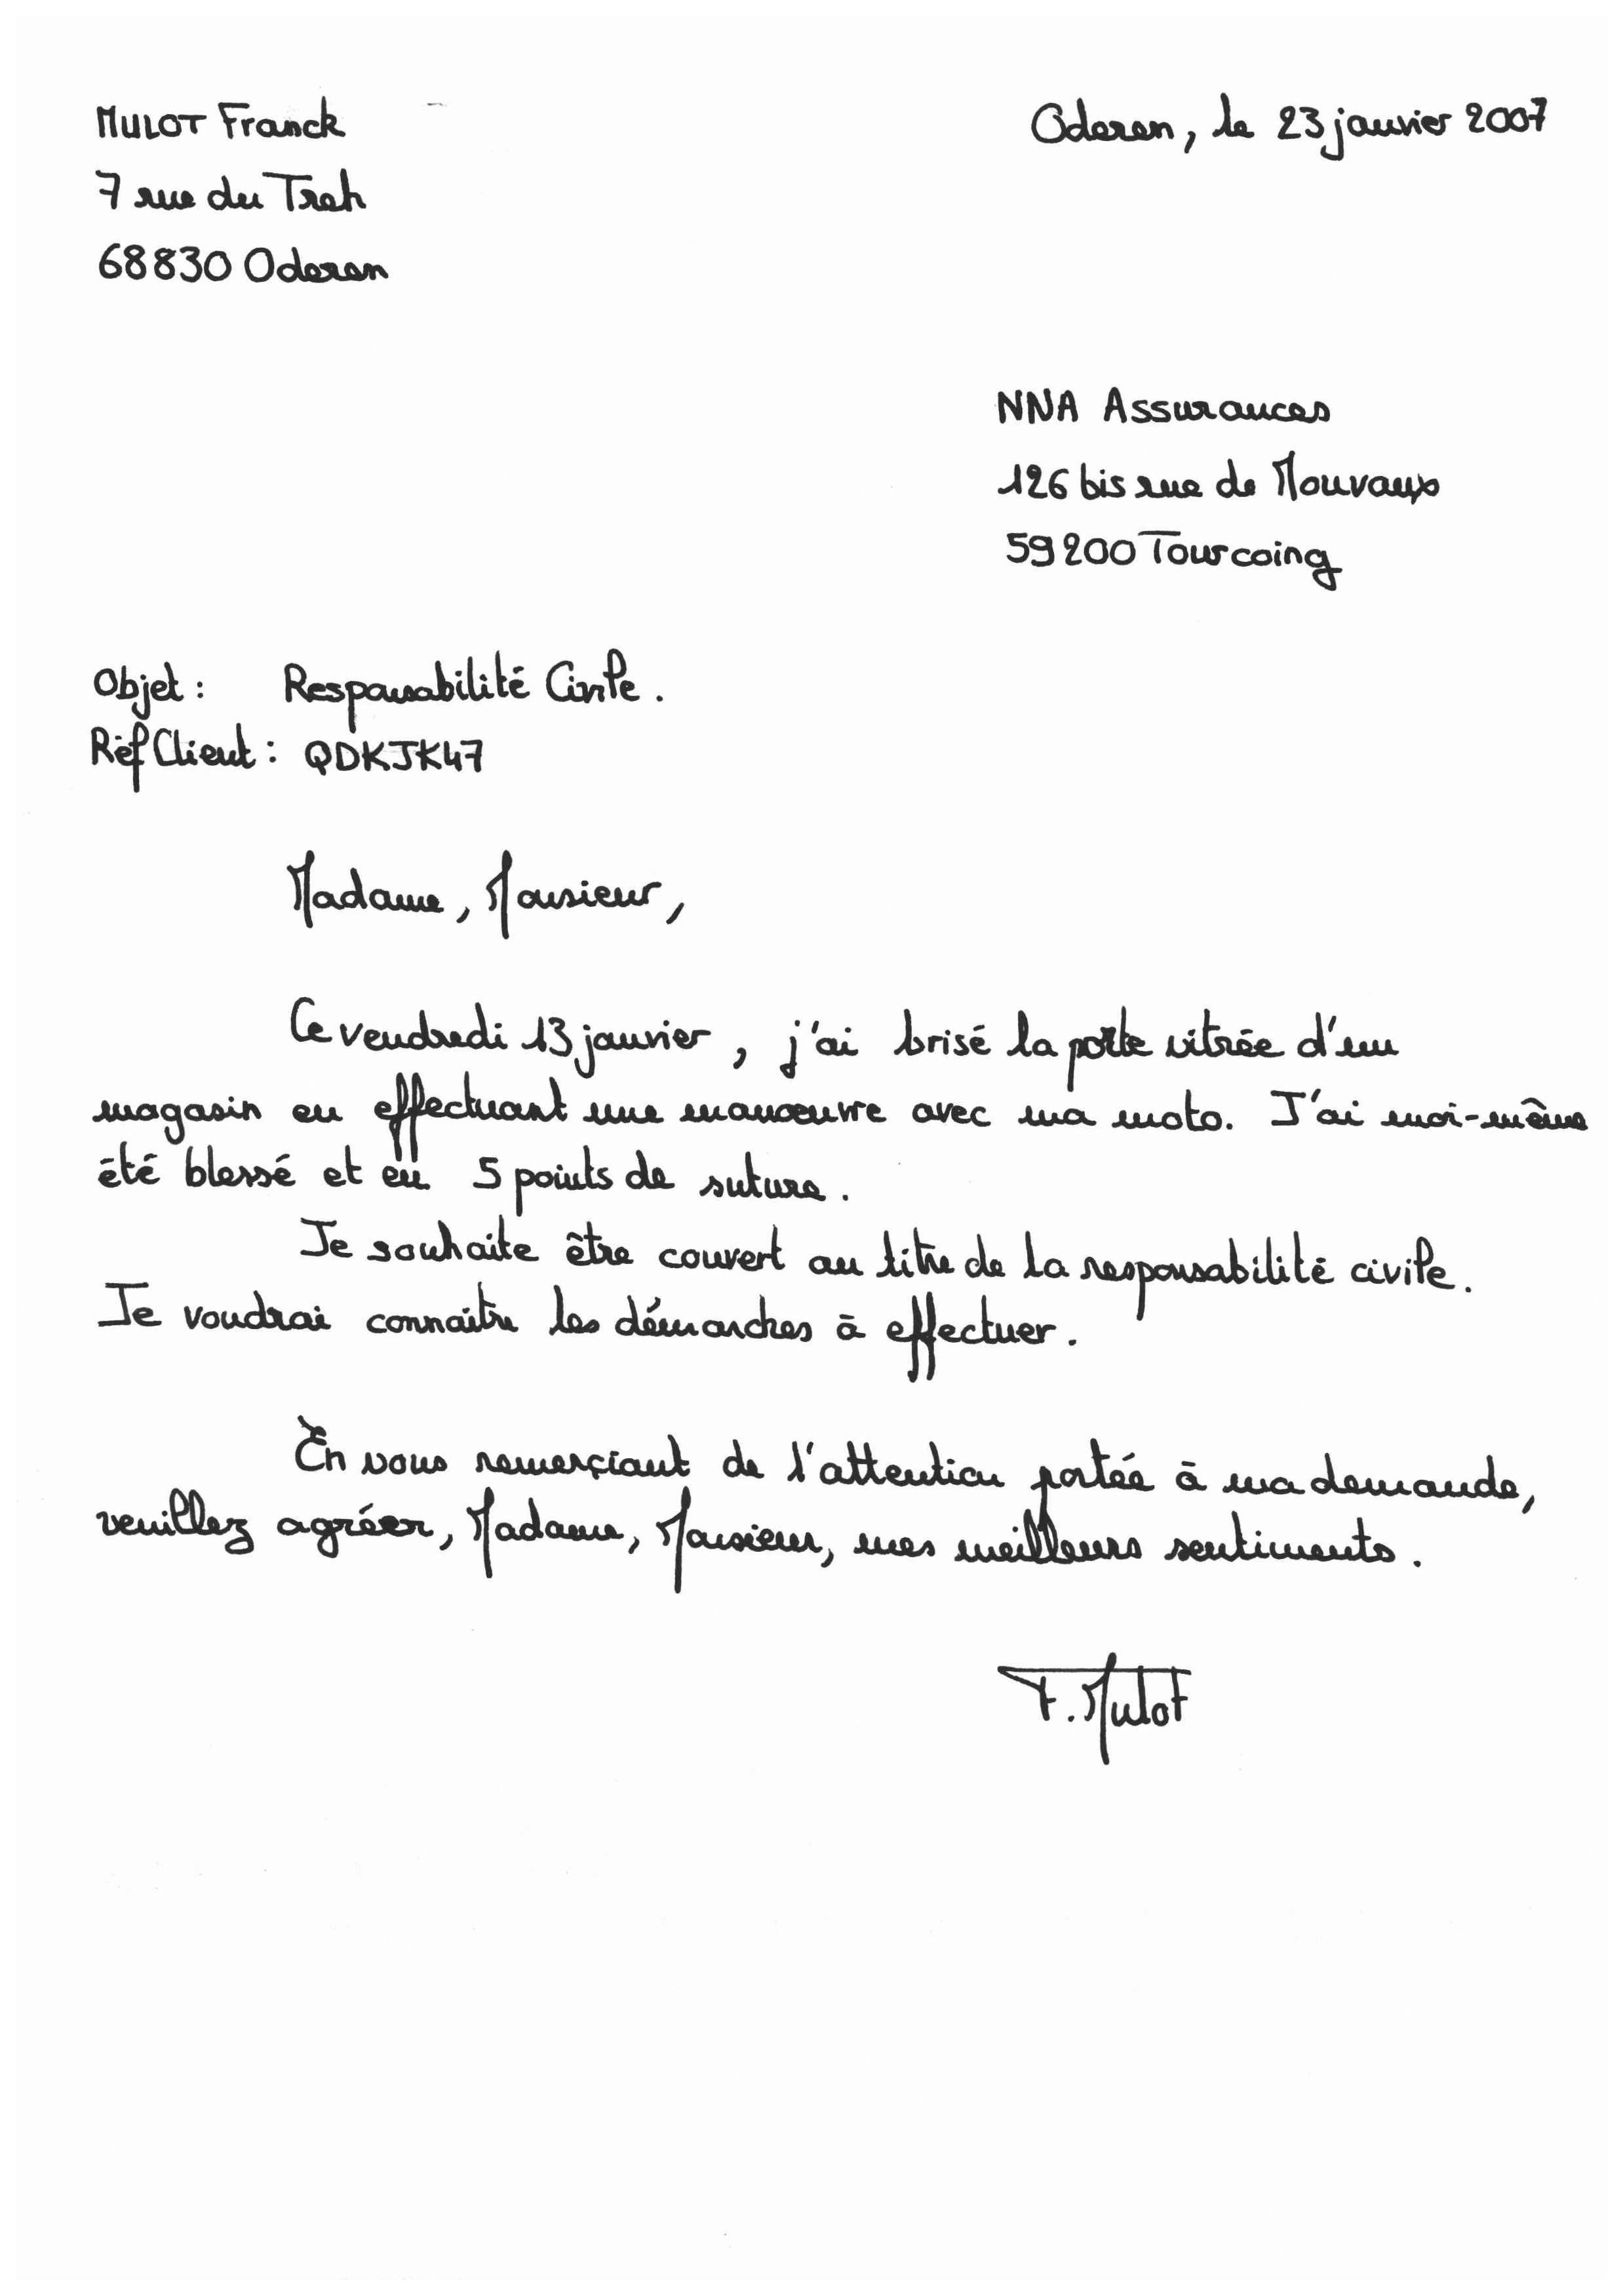 MULOT Franck
Oderen, le 23 janvier 2007
7 rue du Treh
68830 Oderen
NNA Assurances
126 bis rue de Mouvaux
59200 Tourcoing
Objet : Responsabilité Civile.
Réf Client : QDKJK47
Madame, Monsieur,
Ce vendredi 13 janvier, j'ai brisé la porte vitrée d'un
magasin en effectuant une manœuvre avec ma moto. J'ai moi-même
été blessé et eu 5 points de suture.
Je souhaite être couvert au titre de la responsabilité civile.
Je voudrai connaitre les démarches à effectuer.
En vous remerçiant de l'attention portée à ma demande,
veuillez agréer, Madame, Monsieur, mes meilleurs sentiments.
F. Mulot